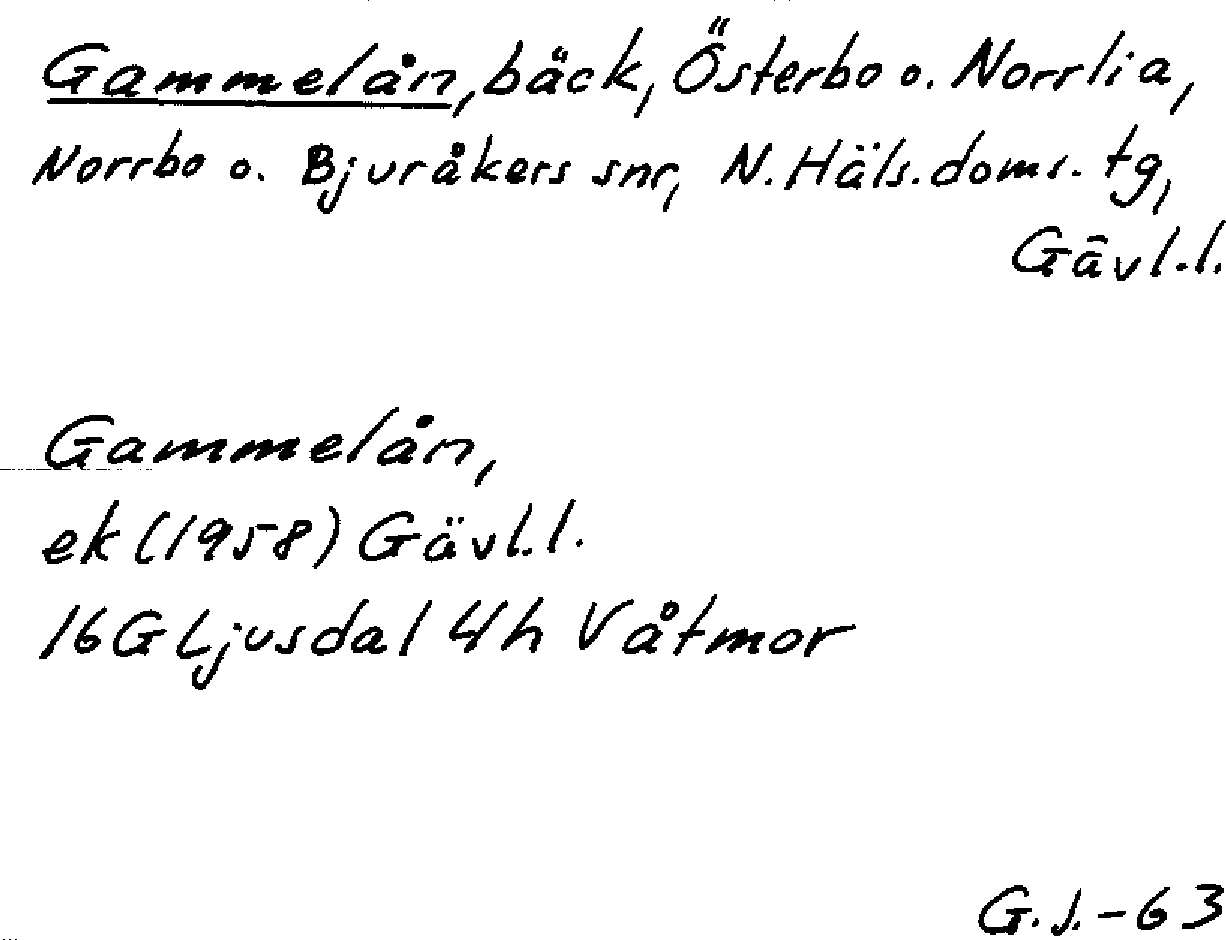 Gammelån, bäck, Österbo o. Norrlia,
Norrbo o. Bjuråkers snr, N. Häls. doms. tg,
Gävl.l.
Gammelån,
ek (1958) Gävl.l.
16G Ljusdal 4h Våtmor
G.J.-63